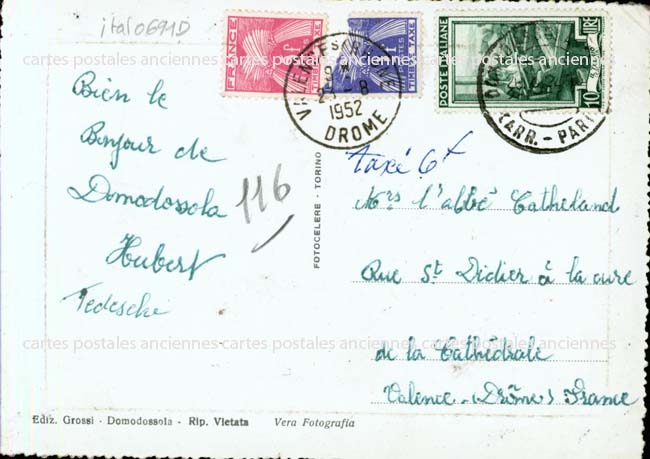 ital0691D
FRANCE
TIMBRE TAXE
TIMBRE TAXE
POSTE ITALIANE
LIRE
10
VALENCE S/ RHONE
1952
DROME
(ARR. - PAR
Bien le
Bonjour de
Domodossola
Hubert
Tedeschi
116
FOTOCELERE - TORINO
taxé 6f
Mrs l'abbé Catheland
Rue St Didier à la cure
de la Cathédrale
Valence (Drôme) France
cartes postales anciennes cartes postales anciennes cartes postales anciennes
cartes postales anciennes cartes postales anciennes cartes postales anciennes
Ediz. Grossi - Domodossola - Rip. Vietata Vera Fotografia